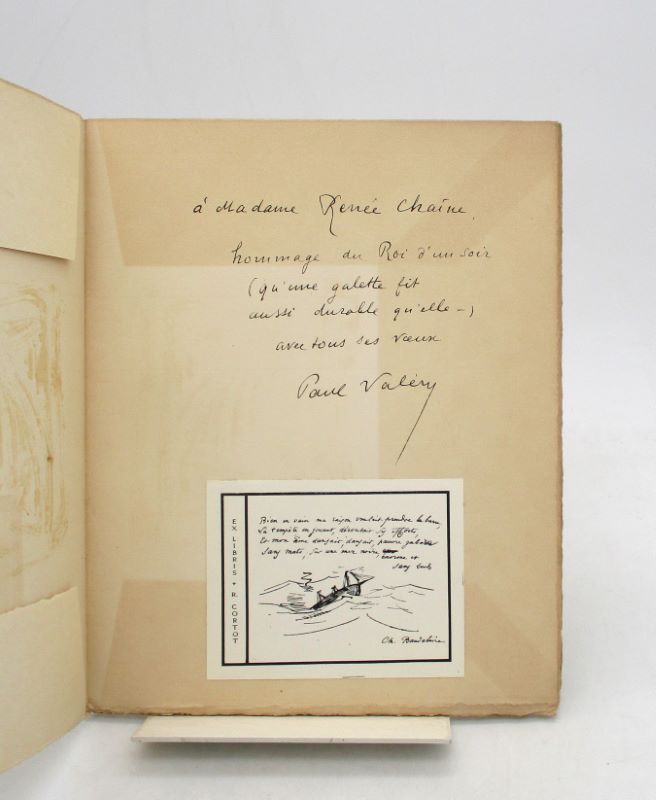 à Madame Renée Chaîne,
hommage du Roi d'un soir
(qu'une galette fit
aussi durable qu'elle –)
avec tous ses vœux
Paul Valéry
EX LIBRIS + R. CORTOT
Bien en vain ma raison voulait prendre la barre,
La tempête en jouant, déroutait ses efforts,
Et mon âme dansait, dansait, pauvre gabarre
Sans mats, sur une mer noire, énorme et
sans bords
Ch. Baudelaire